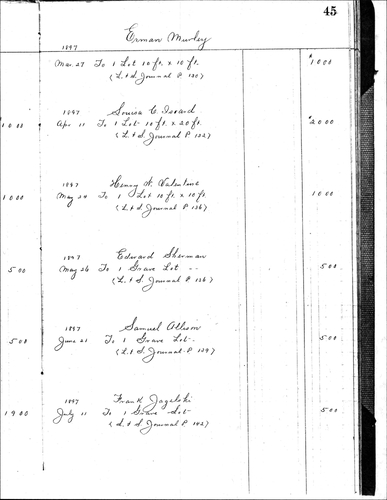 45
Erman Murley
1897
Mar. 27 To 1 Lot 10 ft. x 10 ft. $1000
(L & S Journal P 130)
1897 Louisa C.
1000 Apr 11 To 1 Lot 10 ft. x 20 ft. $2000
(L & S. Journal P 132)
1897 Henry A. Valentine
1000 May 24 To 1 Lot 10 ft. x 10 ft. 1000
(L & S Journal P 136)
1897 Edward Sherman
500 May 26 To 1 Grave Lot -- 500
(L & S. Journal P 136)
1897 Samuel Allison
500 June 21 To 1 Grave Lot- 500
(L & S. Journal P 139)
1897 Frank Jagelski
1900 July 11 To 1 Grave Lot 500
(L & S Journal P 142)